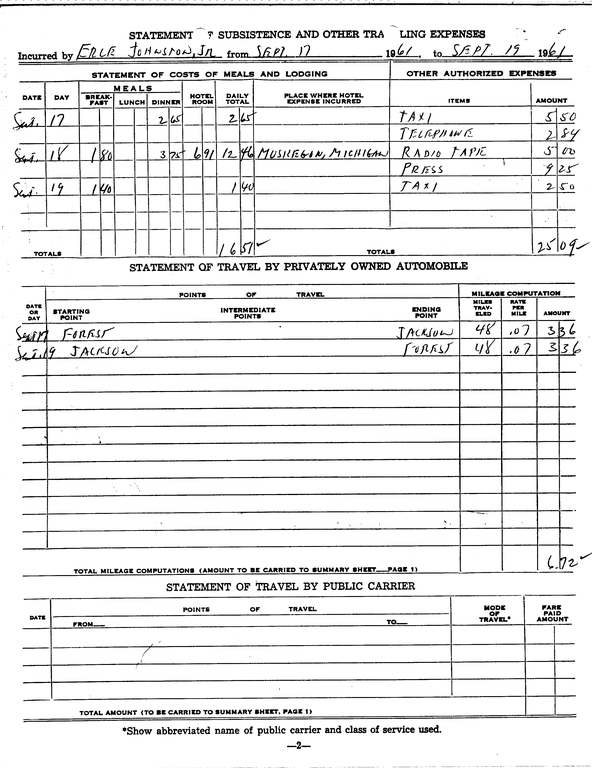 STATEMENT SUBSISTENCE AND OTHER TRA LING EXPENSES
Incurred by ERLE JOHNSTON, JR from SEPT. 17 1961, to SEPT. 19 1961
STATEMENT OF COSTS OF MEALS AND LODGING OTHER AUTHORIZED EXPENSES
DATE DAY MEALS BREAK-FAST LUNCH DINNER HOTEL ROOM DAILY TOTAL PLACE WHERE HOTEL EXPENSE INCURRED ITEMS AMOUNT
Sept. 17 2 65 2 65 TAXI 5 50
TELEPHONE 2 84
Sept. 18 1 80 3 75 6 91 12 46 MUSKEGON, MICHIGAN RADIO TAPE 5 00
PRESS 9 25
Sept. 19 1 40 1 40 TAXI 2 50
TOTALS 16 51 ✓ TOTALS 25 09 ✓
STATEMENT OF TRAVEL BY PRIVATELY OWNED AUTOMOBILE
POINTS OF TRAVEL MILEAGE COMPUTATION
DATE OR DAY STARTING POINT INTERMEDIATE POINTS ENDING POINT MILES TRAV-ELED RATE PER MILE AMOUNT
Sept 17 FOREST JACKSON 48 .07 3 36
Sept. 19 JACKSON FOREST 48 .07 3 36
TOTAL MILEAGE COMPUTATIONS (AMOUNT TO BE CARRIED TO SUMMARY SHEET PAGE 1) 6.72 ✓
STATEMENT OF TRAVEL BY PUBLIC CARRIER
DATE POINTS OF TRAVEL MODE OF TRAVEL* FARE PAID AMOUNT
FROM TO
TOTAL AMOUNT (TO BE CARRIED TO SUMMARY SHEET. PAGE 1)
*Show abbreviated name of public carrier and class of service used.
—2—